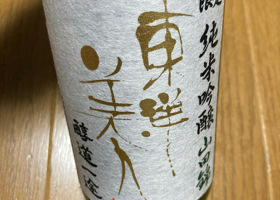 限定純米吟醸山田錦
東洋美人
醇道一途